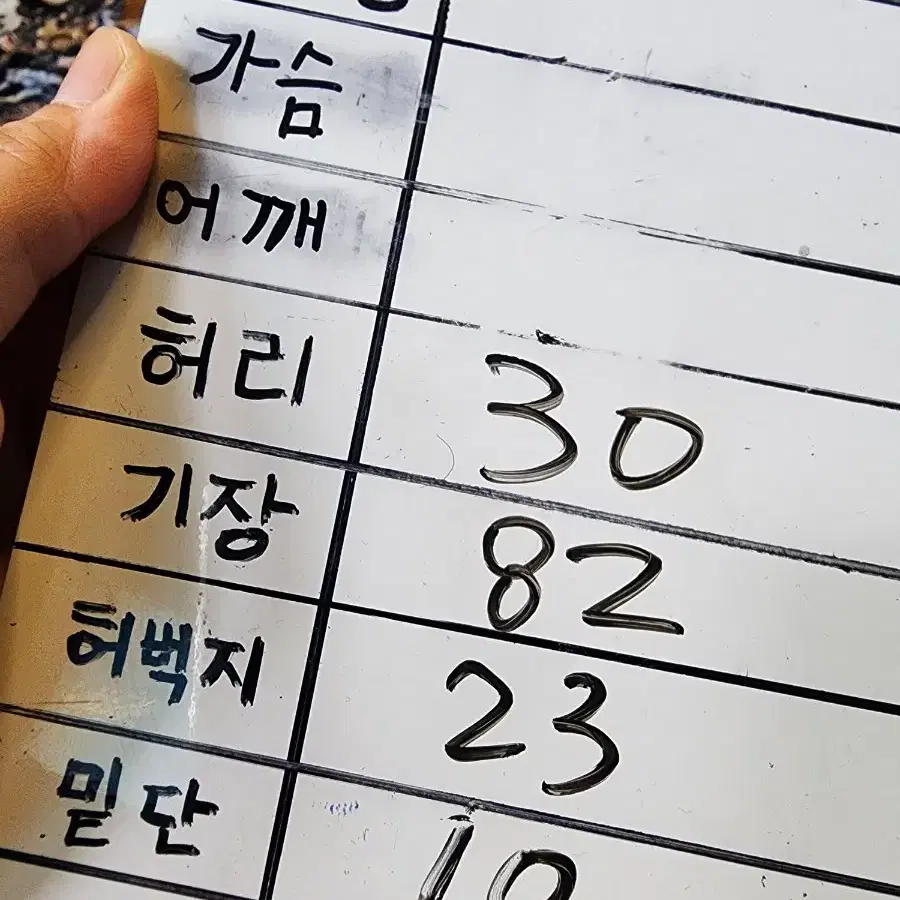 가슴
어깨
허리 30
기장 82
허벅지 23
밑단